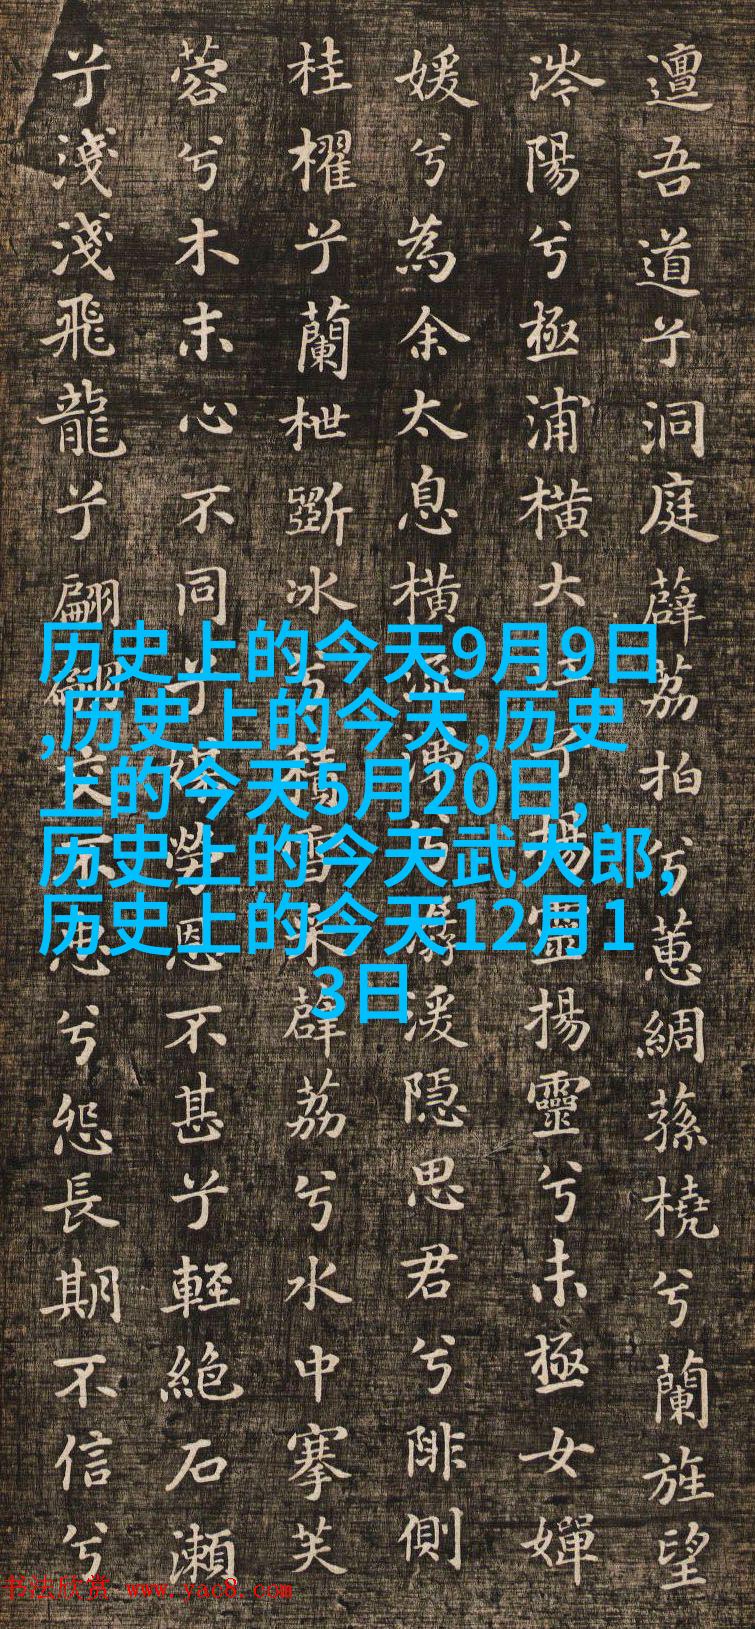 邅吾道兮洞庭薜荔拍兮蕙綢蓀橈兮蘭旌望
涔陽兮極浦橫大江兮揚靈揚靈兮未極女嬋
媛兮為余太息橫流涕兮潺湲隱思君兮陫側
桂櫂兮蘭枻斲冰兮積雪采薜荔兮水中搴芙
蓉兮木末心不同兮媒勞恩不甚兮輕絕石瀨
兮淺淺飛龍兮翩翩交不忠兮怨長期不信兮
历史上的今天9月9日
,历史上的今天,历史
上的今天5月20日,
历史上的今天武大郎,
历史上的今天12月1
3日
书法欣赏 www.yac8.com